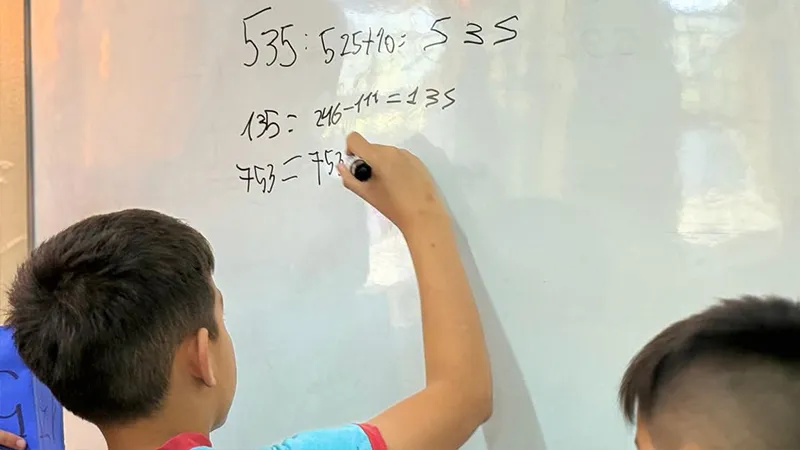 535 : 525+10 = 535
135 = 246-111 = 135
753 = 753